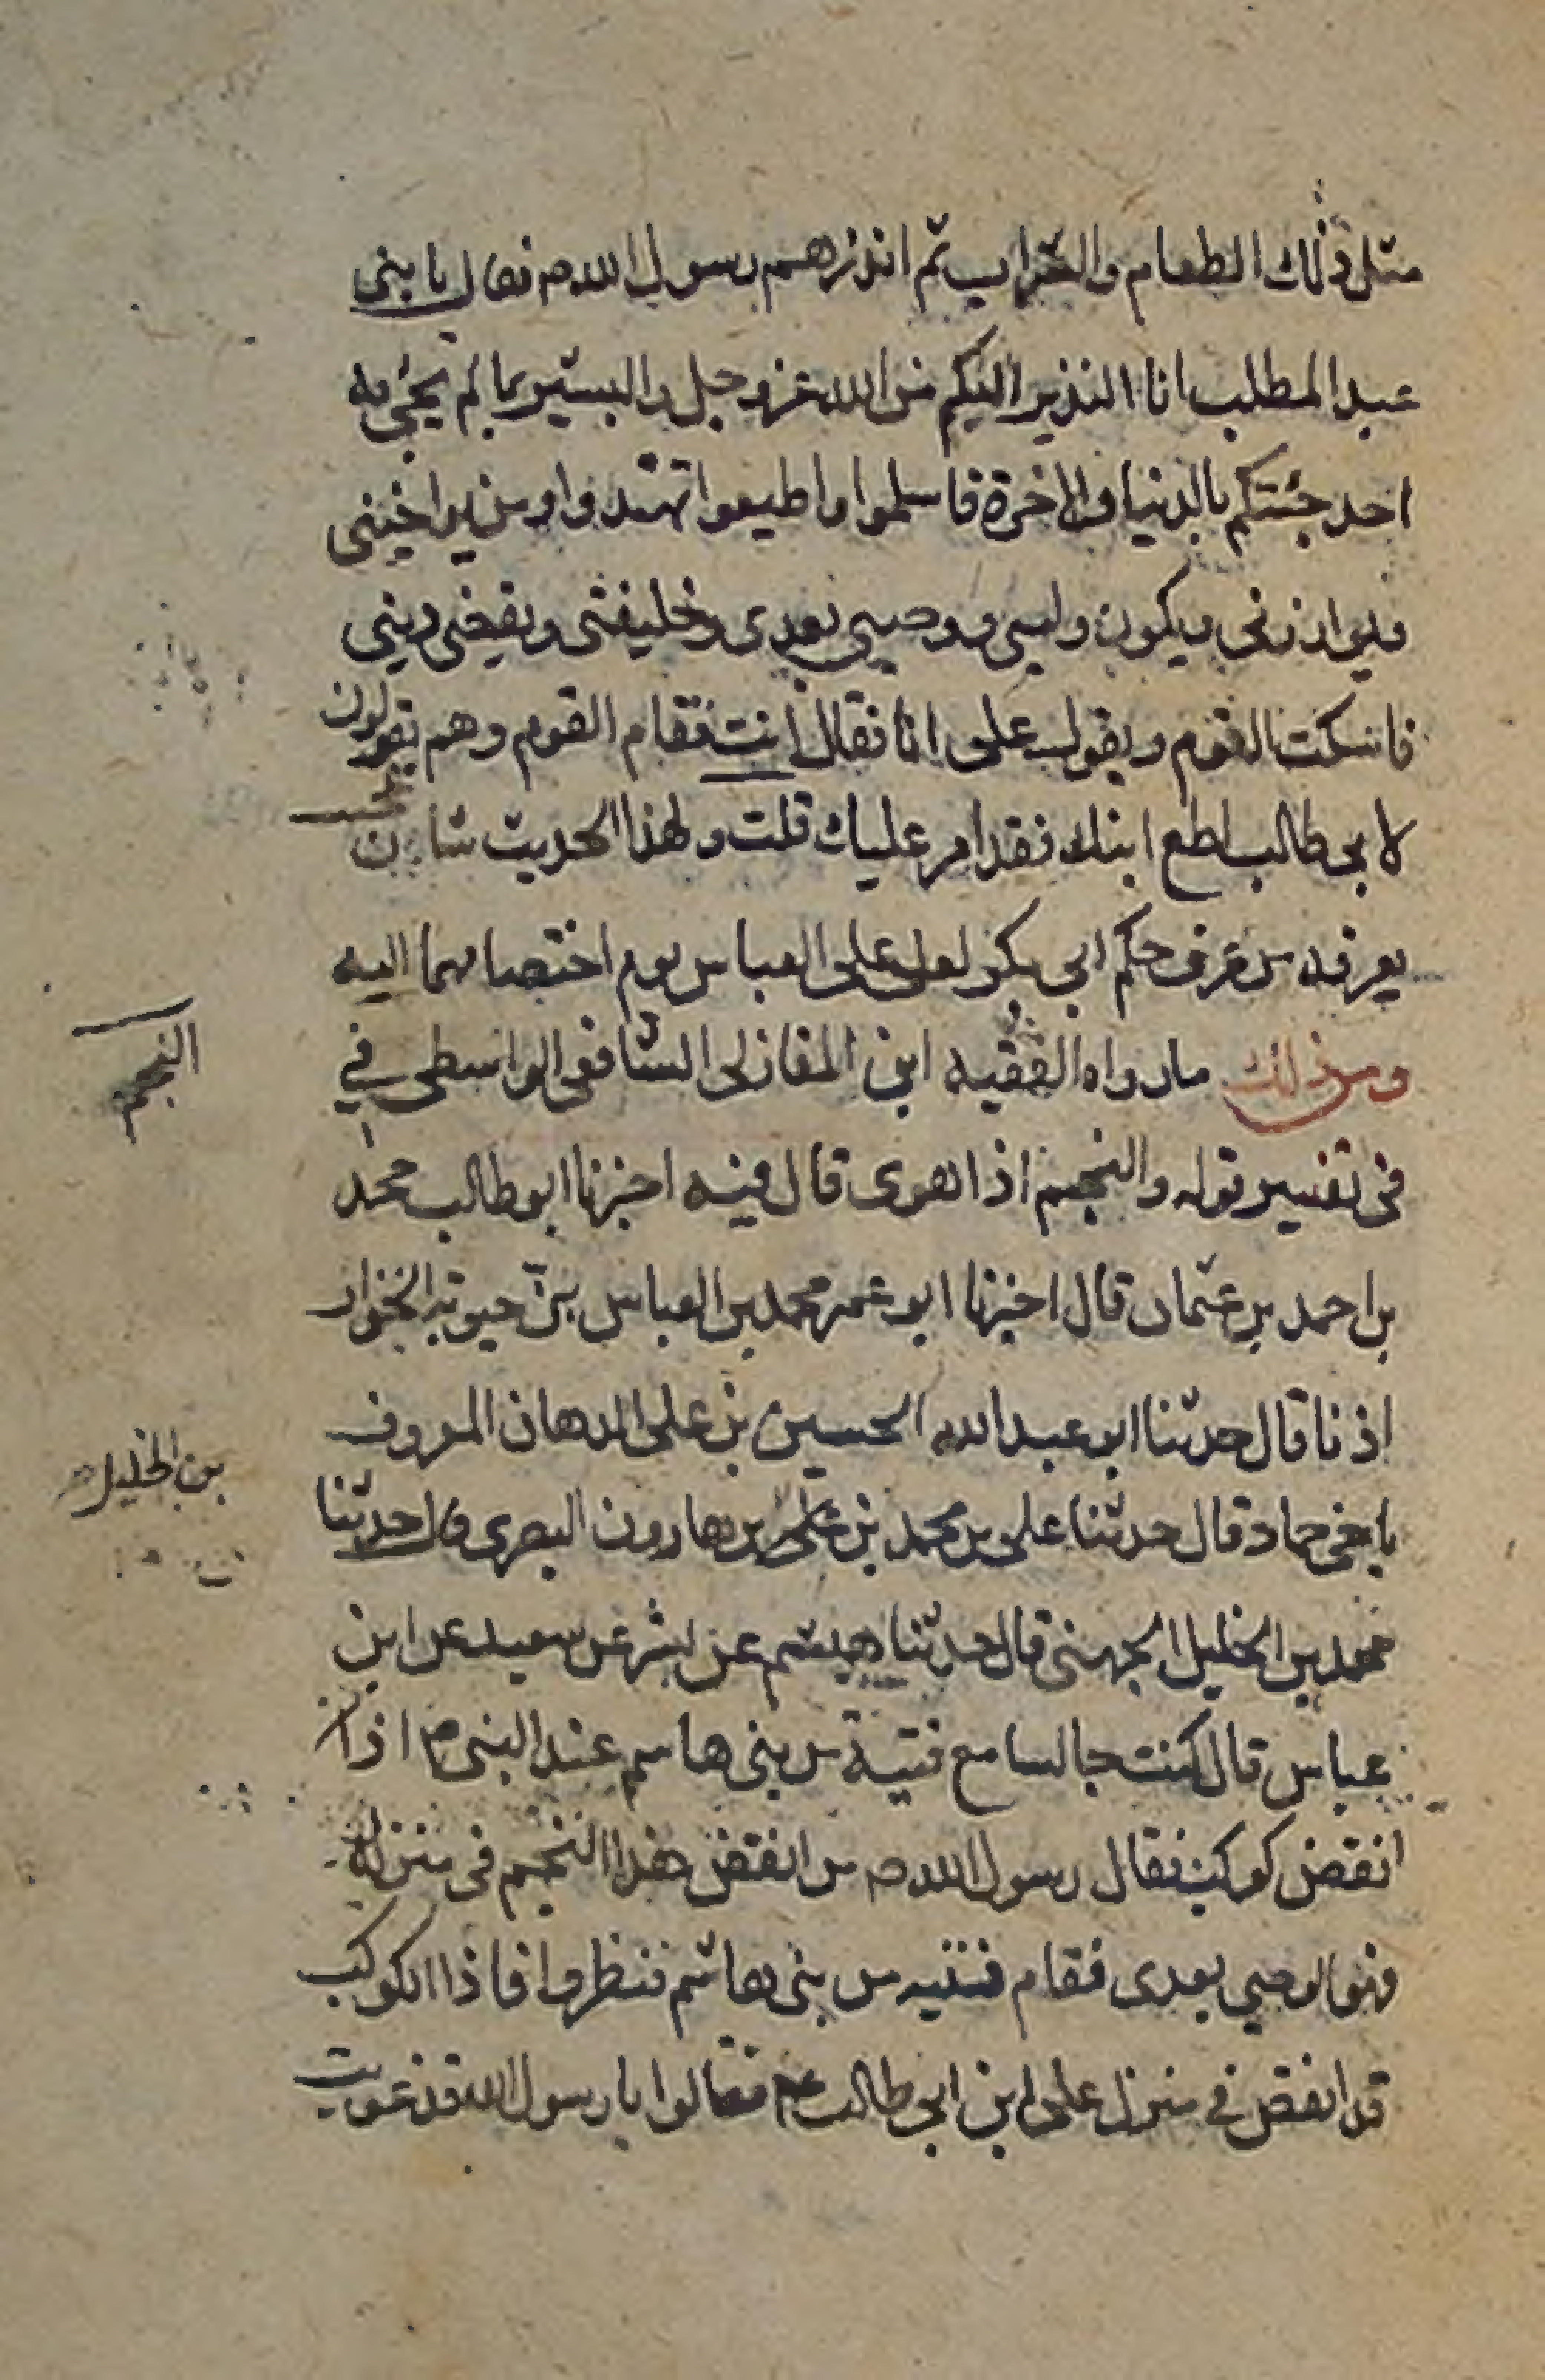 مثل ذلك الطعام والشراب ثم انذرهم رسول الله ص فقال يا بنى
عبد المطلب انا النذير اليكم من الله عز وجل والبشير بما لم يجئ به
احد جئتكم بالدنيا والاخرة فاسلموا واطيعوا تهتدوا ومن يواخينى
ويوازرنى ويكون وليى ووصيى بعدى وخليفتى ويقضى دينى
فاسكت القوم ويقول على انا فقال انت فقام القوم وهم يقولون
لابى طالب اطع ابنك فقد امر عليك قلت ولهذا الحديث شان
يعرفه من عرف حكم ابى بكر لعلى على العباس يوم اختصامهما اليه
ومن ذلك ما رواه الفقيه ابن المغازلى الشافعى الواسطى في
النجم
فى تفسير قوله والنجم اذا هوى قال فيه اخبرنا ابو طالب محمد
بن احمد بن عثمان قال اخبرنا ابو عمر محمد بن العباس بن حيويه الخزاز
اذنا قال حدثنا ابو عبد الله الحسين بن على الدهان المعروف
بن الخليل
باخى حماد قال حدثنا على بن محمد بن على بن هارون البصرى قال حدثنا
محمد بن الخليل الجهنى قال حدثنا هيثم عن بشر عن سعيد عن ابن
عباس قال كنت جالسا مع فتية من بنى هاشم عند النبى ص اذا
انقض كوكب فقال رسول الله ص من انقض هذا النجم فى منزله
فهو الوصي بعدى فقام فتيه من بنى هاشم فنظروا فاذا الكوكب
قد انقض في منزل على ابن ابى طالب ع فقالوا يا رسول الله قد غويت